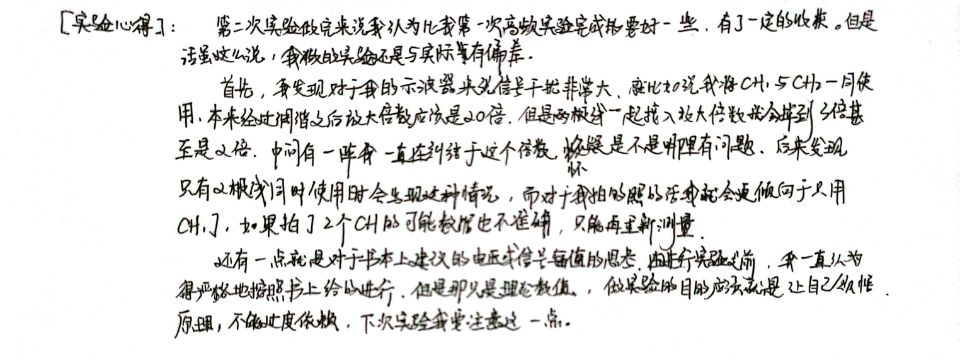 [实验心得]: 第二次实验做完来说我认为比我第一次高频实验完成得要好一些,有了一定的收获。但是
话虽这么说,我做的实验还是与实际有偏差。
首先,我发现对于我的示波器来说信号干扰非常大,就比如说我将CH1与CH2一同使
用,本来经过调谐之后放大倍数应该是20倍,但是两根线一起接入放大倍数就会掉到3倍甚
至是2倍。中间有一阵我一直在纠结于这个倍数,怀疑是不是哪里有问题,后来发现
只有2根线同时使用时会出现这种情况,而对于我拍的照的话我就会更倾向于只用
CH1了,如果拍了2个CH的可能数据也不准确,只能再重新测量。
还有一点就是对于书本上建议的电压或信号幅值的思考,进行实验之前,我一直认为
得严格地按照书上给的进行,但是那只是理论数值,做实验的目的应该就是让自己
原理,不能过度依赖,下次实验我要注意这一点。